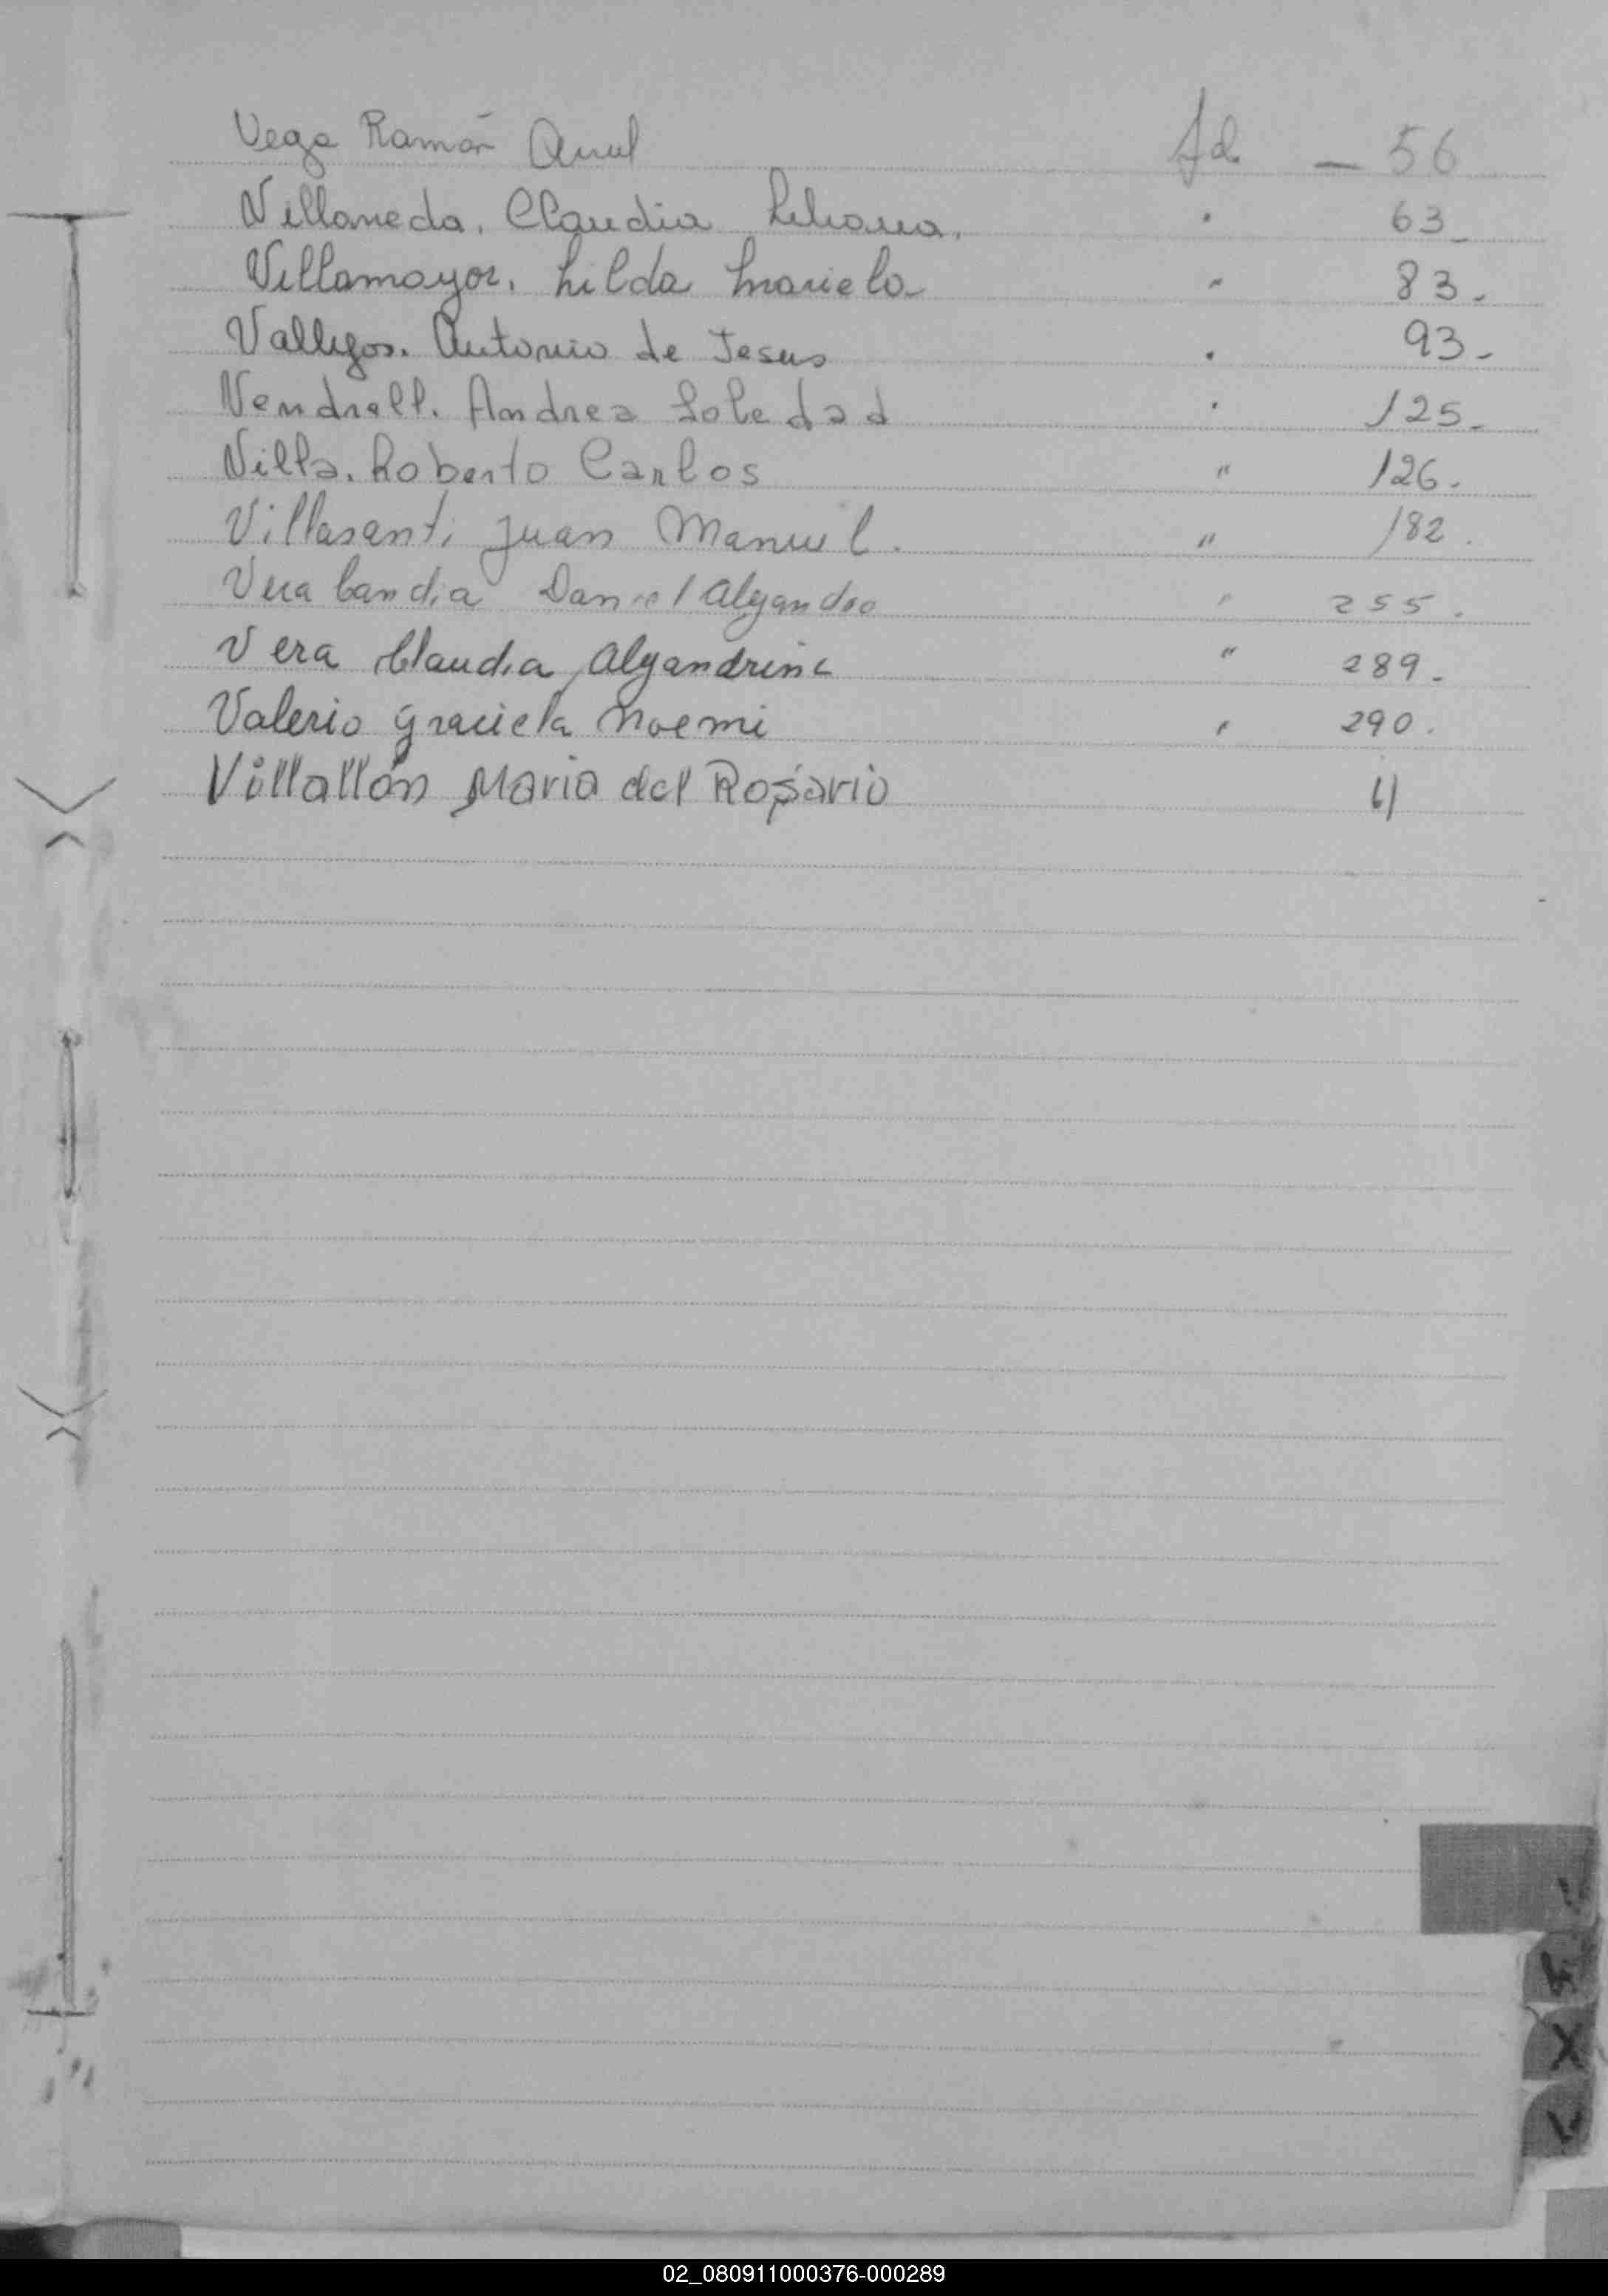 Vega Ramón Anul fd — 56
Villaneda, Claudia Liliana. " 63_
Villamayor, Lilda Mariela " 83.
Vallejos. Antonio de Jesus " 93-
Vendrell. Andrea Soledad " 125_
Villa. Roberto Carlos " 126.
Villasanti Juan Manuel. " 182.
Vera Candia Daniel Alejandro " 255.
Vera Claudia Alejandrina " 289.
Valerio Graciela Noemi " 290.
Villallón Maria del Rosario 4
V
X
02_080911000376-000289